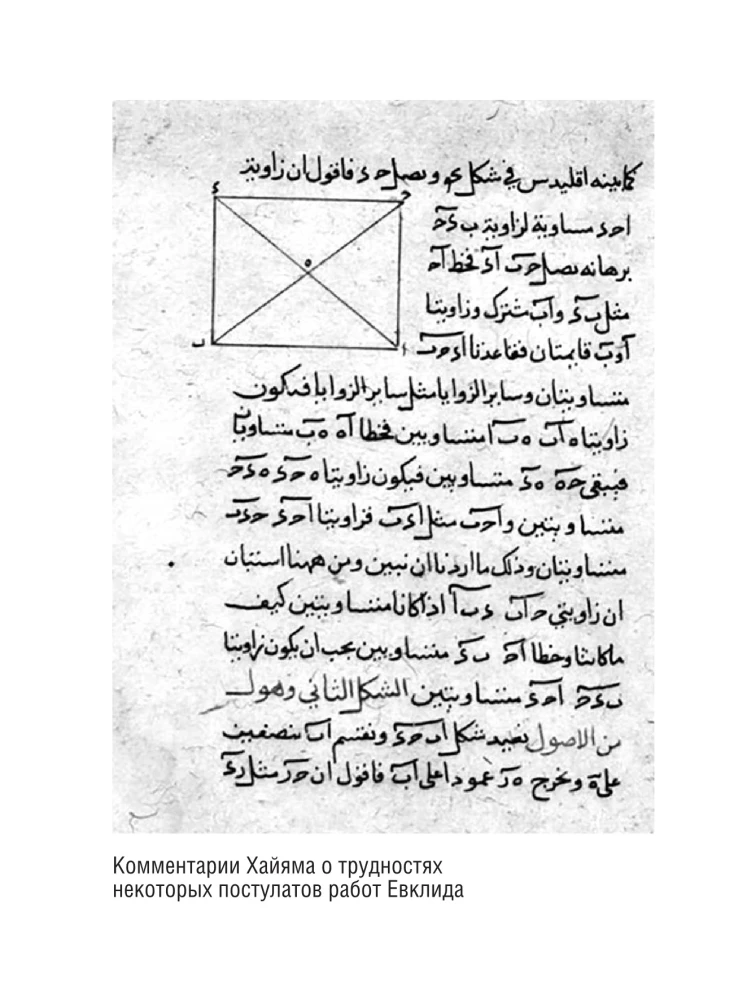 كما بينه اقليدس في شكل ونصل حد فاقول ان زاوية
احد مساوية لزاوية بدح
برهانه نصل حب اد فخط اح
مثل بد واب مشترك وزاويتا
قايمتان فقاعدتا اد حب
متساويتان وساير الزوايا مثل ساير الزوايا فيكون
زاويتا ه اب ه ب ا متساويين فخطا اه ه ب متساويان
فيبقى حه ه د متساويين فيكون زاويتا ه حد ه دح
متساويتين واحب مثل ادب فزاويتا احد حدب
متساويتان وذلك ما اردنا ان نبين ومن ههنا استبان
ان زاويتي حاب دبا اذا كانا متساويتين كيف
ما كانتا وخطا اح بد متساويين يجب ان يكون زاويتا
بدح احد متساويتين الشكل الثاني وهو
من الاصول نعيد شكل ابحد ونقسم اب بنصفين
على ه ونخرج هز عمودا على اب فاقول ان حز مثل زد
د
ح
ه
ب
ا
Комментарии Хайяма о трудностях
некоторых постулатов работ Евклида